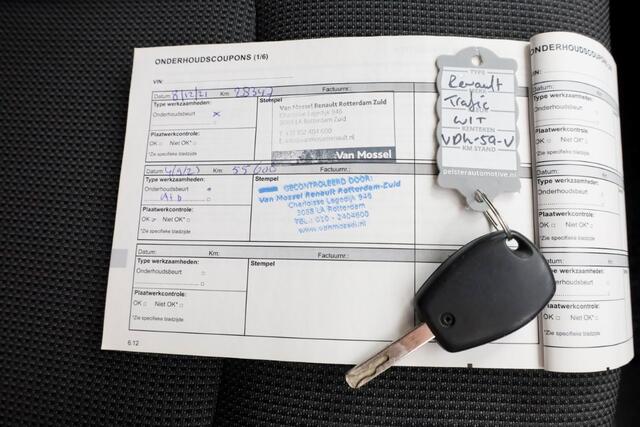 ONDERHOUDSCOUPONS (1/6)
VIN:
Datum: 8/12/21 Km: 28347 Factuurnr.:
Type werkzaamheden:
Onderhoudsbeurt x
Plaatwerkcontrole:
OK Niet OK*
*Zie specifieke bladzijde
Stempel
Van Mossel Renault Rotterdam Zuid
Charloisse Lagedijk 946
3088 LA Rotterdam
Van Mossel
Datum: Km: 55000 Factuurnr.:
Type werkzaamheden:
Onderhoudsbeurt
Plaatwerkcontrole:
OK Niet OK*
*Zie specifieke bladzijde
Stempel
GECONTROLEERD DOOR:
Van Mossel Renault Rotterdam-Zuid
Charloisse Lagedijk 946
3088 LA Rotterdam
TEL.: 010 - 2404600
www.vanmossel.nl
Datum: Km: Factuurnr.:
Type werkzaamheden:
Onderhoudsbeurt
Plaatwerkcontrole:
OK Niet OK*
*Zie specifieke bladzijde
Stempel
6.12
TYPE
Renault
Trafic
WIT
KENTEKEN
VDK-59-V
KM STAND
pelsterautomotive.nl
ONDERHOUDSCOUPON
VIN:
Datum:
Type werkzaamheden:
Onderhoudsbeurt
Plaatwerkcontrole:
OK Niet OK*
*Zie specifieke bladzijde
Datum:
Type werkzaamheden:
Onderhoudsbeurt
Plaatwerkcontrole:
OK Niet OK*
*Zie specifieke bladzijde
Datum:
Type werkzaamheden:
Onderhoudsbeurt
Plaatwerkcontrole:
OK Niet OK*
*Zie specifieke bladzijde